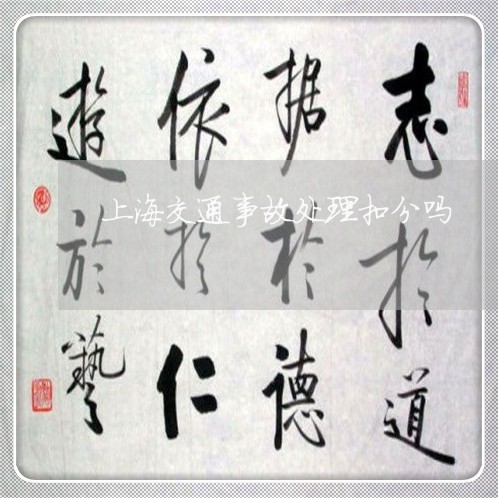 志於道
据於德
依於仁
遊於藝
上海交通事故处理扣分吗